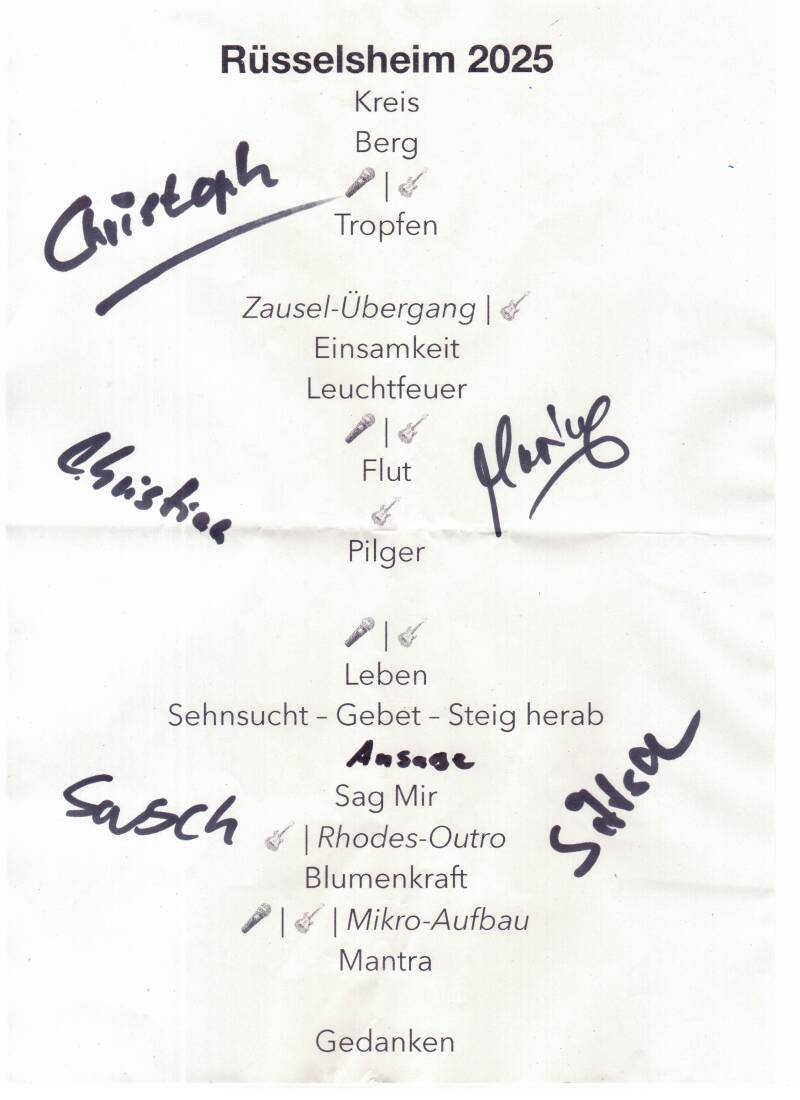 Rüsselsheim 2025
Kreis
Berg
Christoph
|
Tropfen
Zausel-Übergang |
Einsamkeit
Leuchtfeuer
|
Marius
Flut
Christian
Pilger
|
Leben
Sehnsucht – Gebet – Steig herab
Ansage
Sag Mir
Sasch
| Rhodes-Outro
Blumenkraft
| | Mikro-Aufbau
Mantra
Gedanken